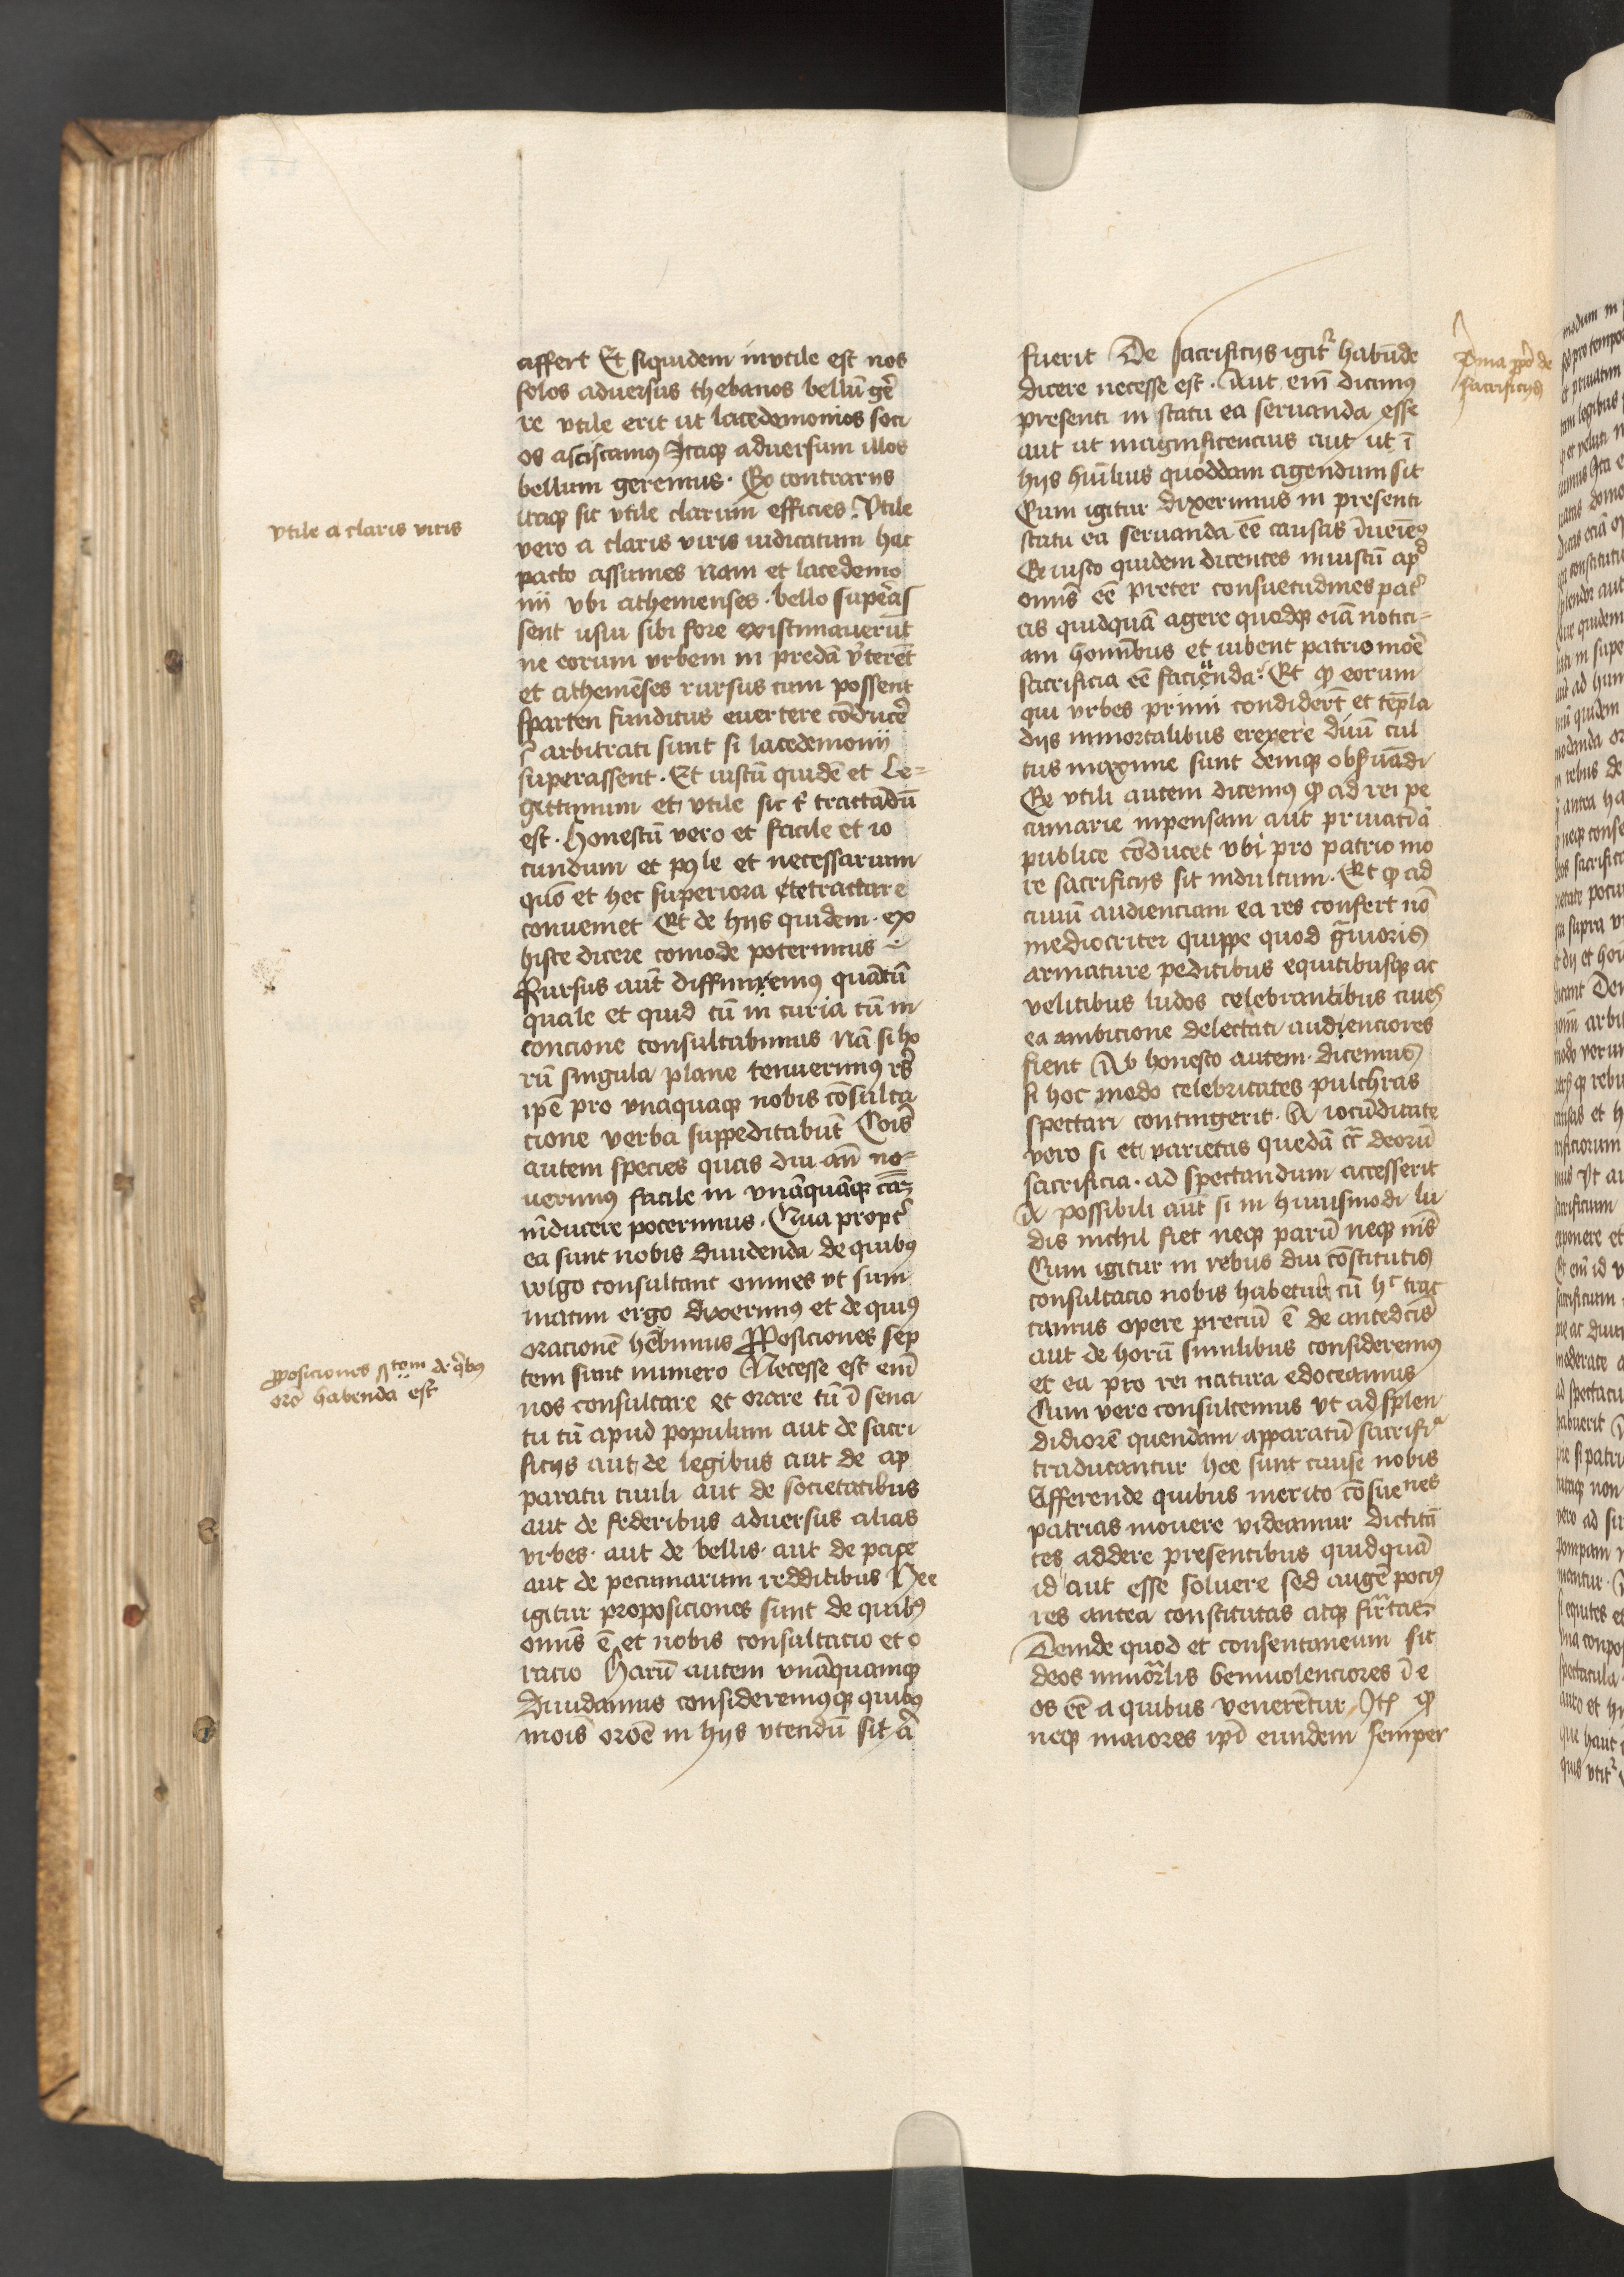 affert Et siquidem inutile est nos
solos aduersus thebanos bellū gerē
re vtile erit ut lacedemonios soci
os asciscamus Itaqꝫ aduersum illos
bellum geremus. Ex contrarijs
itaqꝫ sic vtile clarum efficies. Vtile
vtile a claris viris
vero a claris viris iudicatum hac
pacto assumes Nam et lacedemo
nij vbi athenienses bello superas
sent usui sibi fore existimauerūt
ne eorum vrbem in predā v̓terent
et atheniēses rursus cum possent
sparten funditus euertere cōducere
arbitrati sunt si lacedemonij
superassent. Et iustū quidē et Le=
gittimum et vtile sic tractādū
est. Honestū vero et facile et io
cundum et pole et necessarium
quō et hec superiora tractare
conueniet Et de hijs quidem ex
histe dicere comode poterimus
Rursus aūt diffiniemus quātū
quale et quid tū in curia tū in
concione consultabimus Nā si ho
rū singula plane tenuerimus res
ipē pro vnaquaqꝫ nobis cōsulta
cione verba suppeditabūt Cōis
autem species quas diu an̄ no=
uerimus facile in vnāquāqꝫ eaꝫ
inducere poterimus. Qua propt̓
ea sunt nobis diuidenda de quibus
volgo consultant omnes vt sum
matim ergo dixerimus et de quibus
oracionē hēbimus Proposiciones sep
tem sunt numero Necesse est em̄
proposiciones sep tem de quibus
orō habenda est
nos consultare et orare tū ī sena
tu tū apud populum aut de sacri
ficijs aut de legibus aut de ap
paratu ciuili aut de societatibus
aut de federibus aduersus alias
vrbes. aut de bellis. aut de pace
aut de pecuniarum redditibus Hee
igitur proposiciones sunt de quibus
omīs ē et nobis consultacio et o
racio Harū autem vnāquamqꝫ
Diuidamus consideremusqꝫ quibus
mōis orōē in hijs vtendū sit
fuerit De sacrificijs igit̓ habūde
Prima de
sacrificijs
dicere necesse est. Aut em̄ dicimus
presenti in statu ea seruanda esse
aut ut magnificencius aut ut ī
hijs huīlius quoddam agendum sit
Cum igitur dixerimus in presenti
statu ea seruanda eē causas īueiem9
Ex iusto quidem dicentes iniustū ap̄d
omīs eē preter consuetudines pat̓
as quidquā agere quodqꝫ oīa notici=
am hominibus et iubent patrio more
sacrificia eē facienda. Et qꝫ eorum
qui vrbes primi condidert̄ et tēpla
dijs inmortalibus erexere diuū cul
tus maxime sunt demqꝫ obseruādi
Ex vtili autem dicemus qꝫ ad rei pe
cuniarie inpensam aut priuatā
publice cōducet vbi pro patrio mo
re sacrificijs sit indultum. Et qꝫ ad
ciuiū audienciam ea res confert nō
mediocriter quippe quod grauioris
armature peditibus equitibusqꝫ ac
velitibus ludos celebrantibus ciues
ea ambicione delectati audienciores
fient Ab honesto autem dicemus
si hoc modo celebritates pulchras
spectari contingerit. A iocūditate
vero si et varietas quedā cir̄ deorū
sacrificia. ad spectandum accesserit
A possibili aūt si in huiusmodi lu
dis nichil fiet neqꝫ parū neqꝫ nīs
Cum igitur in rebus diu cōstitutis
consultacio nobis habetur cū hc̄ trac
tamus opere preciū ē de antedcīs
aut de horū similibus consideremus
et ea pro rei natura edoceamus
Cum vero consultemus vt ad splen
didiorē quendam apparatū sacrifia
traducantur hee sunt cause nobis
Afferende quibus merito cōsuenes
patrias mouere videamur dictitā
tes addere presentibus quidquā
id aut esse soluere sed augē pocius
res antea constitutas atqꝫ firmatas
Deinde quod et consentaneum sit
deos inmor̄lis beniuolenciores ī e
os eē a quibus venerētur Itē qꝫ
neqꝫ maiores ip̄i eundem semper